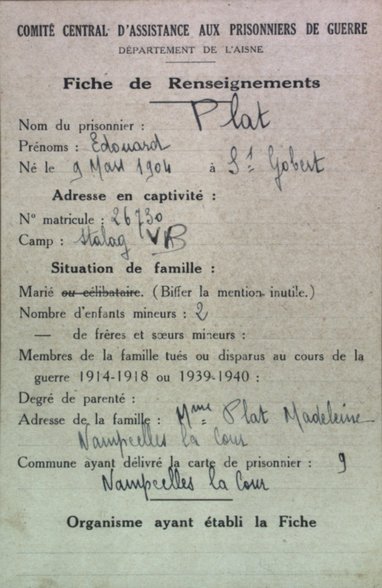 COMITÉ CENTRAL D'ASSISTANCE AUX PRISONNIERS DE GUERRE
DÉPARTEMENT DE L'AISNE
Fiche de Renseignements
Nom du prisonnier : Plat
Prénoms : Edouard
Né le 9 Mars 1904 à St Gobert
Adresse en captivité :
N° matricule : 26730
Camp : Stalag VB
Situation de famille :
Marié ou célibataire. (Biffer la mention inutile.)
Nombre d'enfants mineurs : 2
— de frères et sœurs mineurs :
Membres de la famille tués ou disparus au cours de la
guerre 1914-1918 ou 1939-1940 :
Degré de parenté :
Adresse de la famille : Mme Plat Madeleine
Nampcelles la Cour
Commune ayant délivré la carte de prisonnier : 9
Nampcelles la Cour
Organisme ayant établi la Fiche